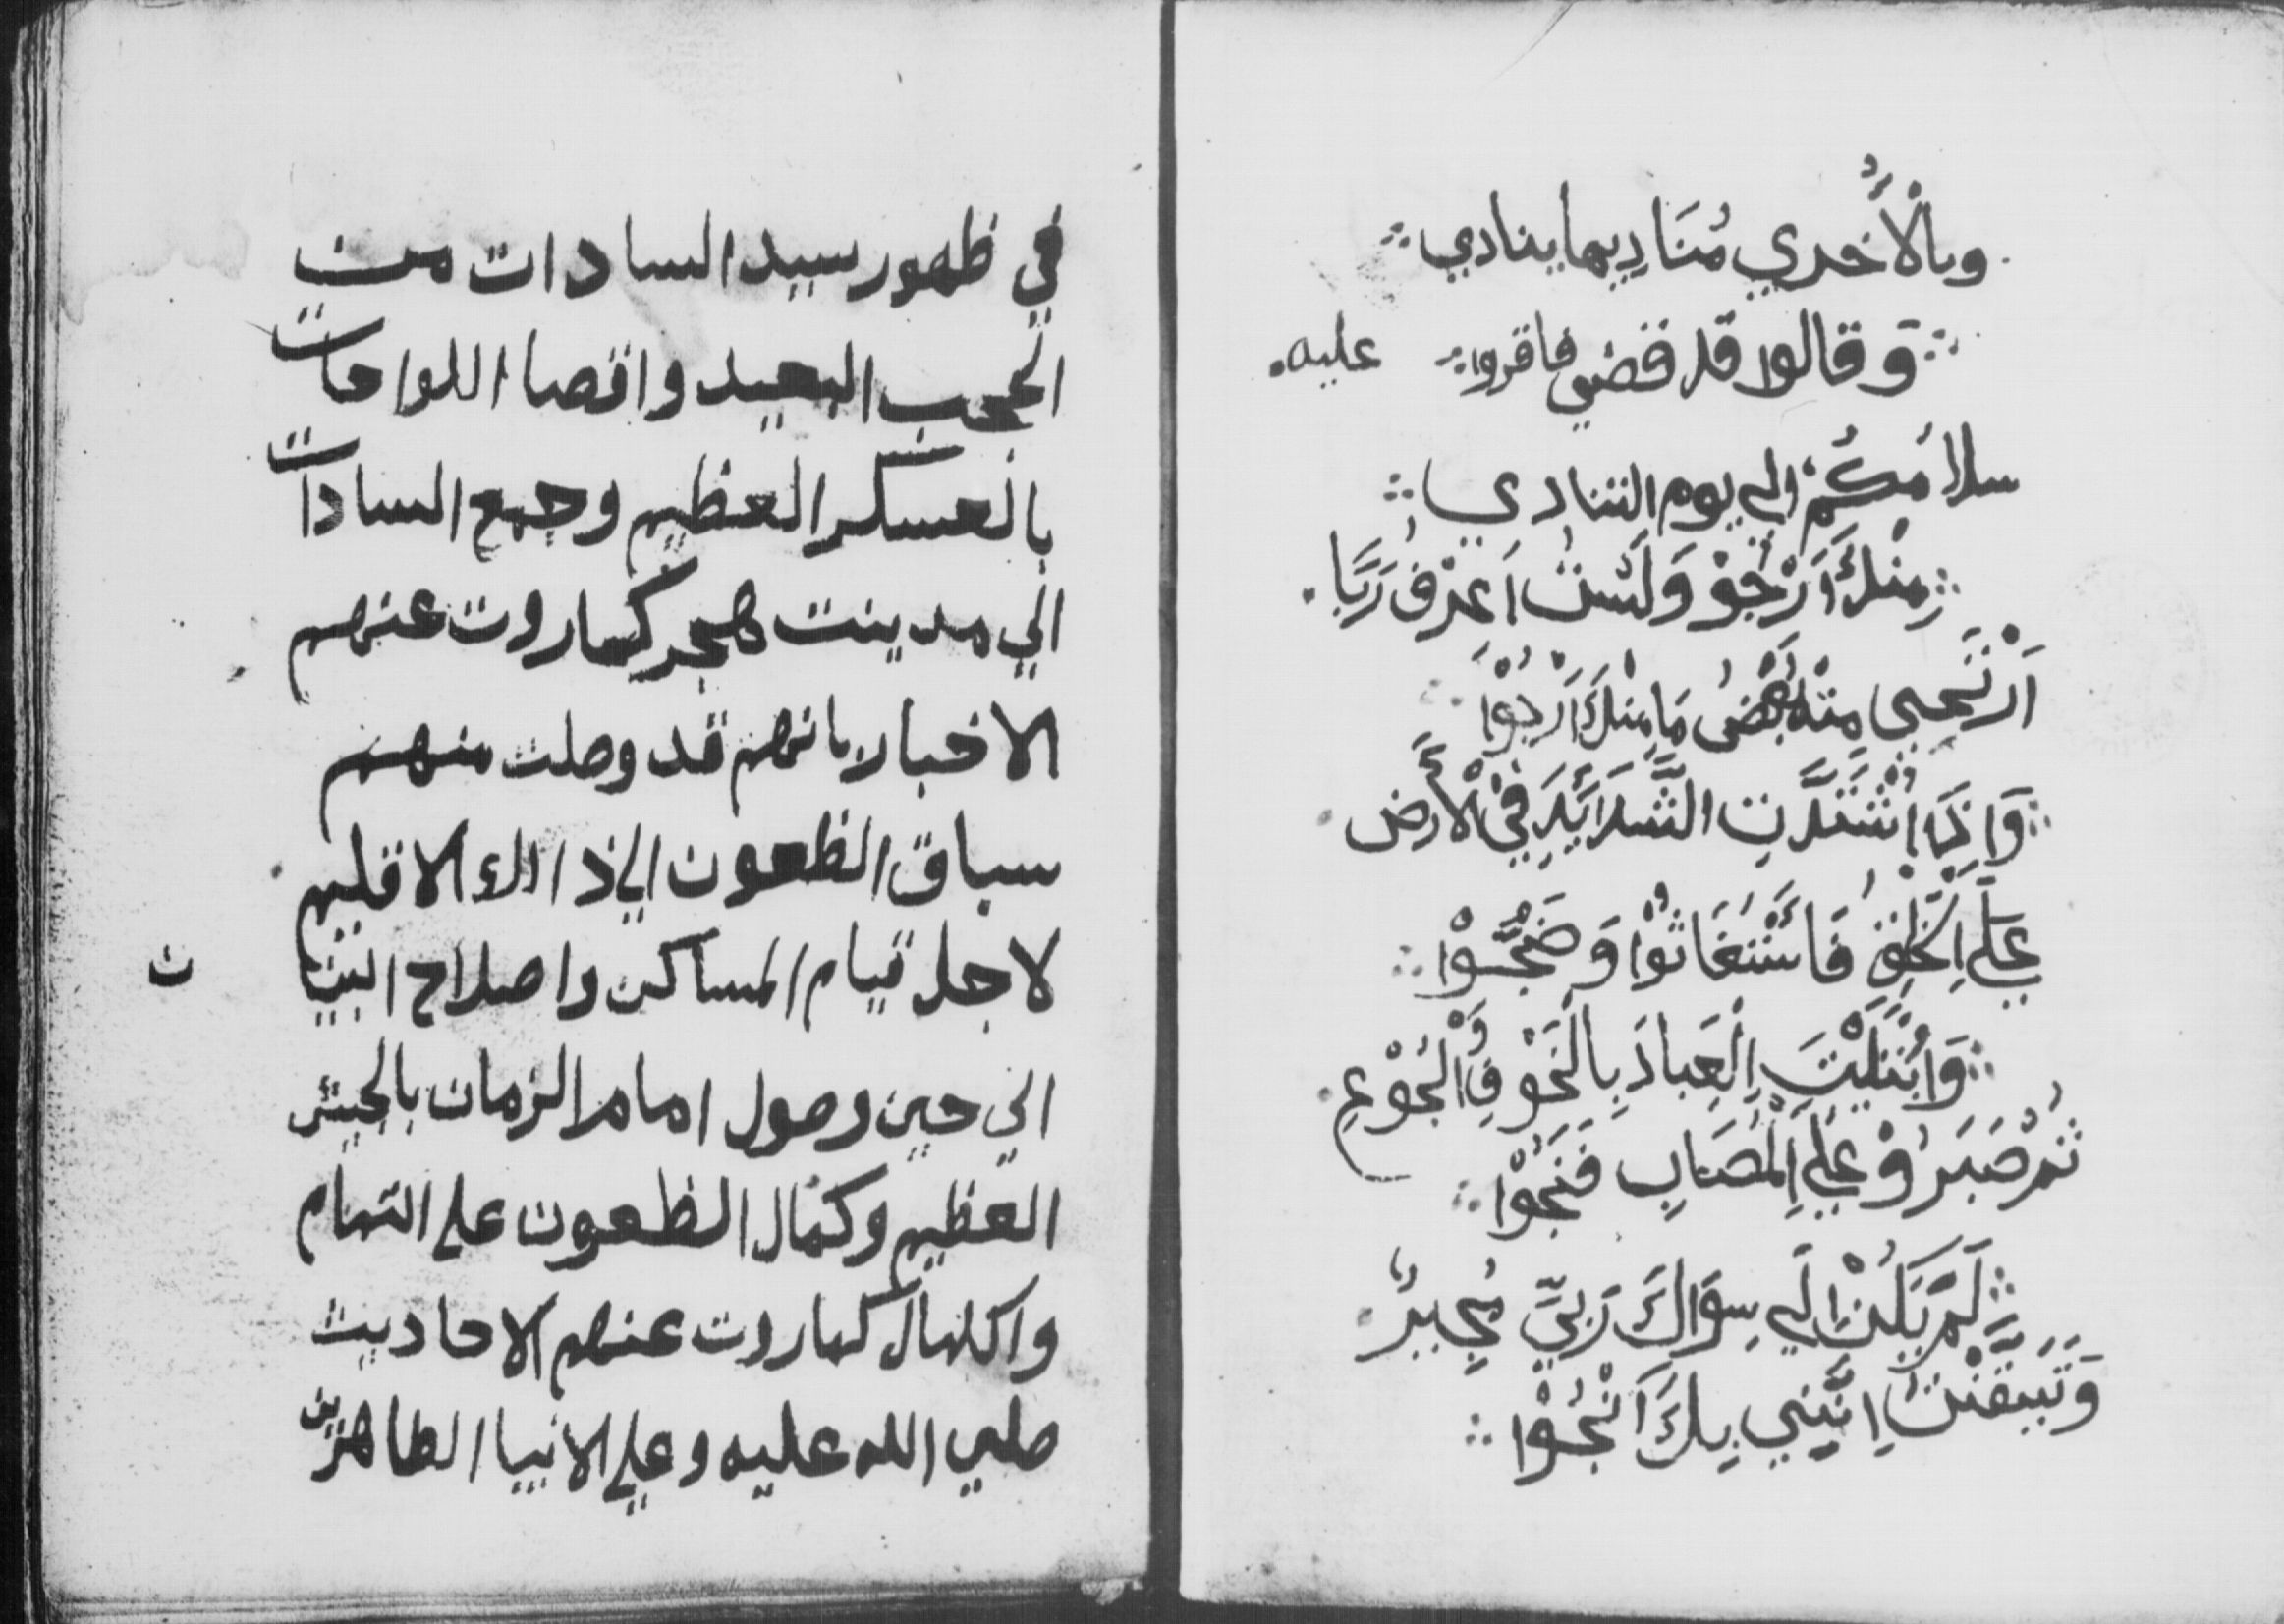 وبالأخري مُنَاديها ينادي
وقالوا قد قضي فاقروا عليه
سلامكُم الي يوم التنادي
منكَ أَرْجُو وَلَسْتُ اَعْرِفُ رَبًّا
اَرْتَجِي مِنْهُ بَعْضُ مَا مِنْكَ اَرْجُوْا
وَاِذَا اشْتَدَّتِ الشَّدَايَدَ فِيْ الْأَرض
عَلَي الخَلْقِ فَاسْتَغَاثُوْا وَضَجُّوْا
وَابْتَلَيْتَ الْعِبادَ بِالْخَوْفِ وَالْجُوْعِ
ثم صَبَرُوْ عَلَي الْمُصَابِ فَنَجَوْا
لَمْ يَكُنْ لِي سِوَاكَ رَبِيِّ مُجِيرُ
وَتَيَقَّنْتُ اِنَّنِي بِكَ اَنْجُوْا
في ظهور سيد السادات من
الحجب البعيد واقصا اللواحات
بالعسكر العظيم وجمع السادات
الي مدينت هجر كما روت عنهم
الاخبار بانهم قد وصلت منهم
سباق الظعون الي ذالك الاقليم
لاجل قيام المساكن واصلاح البيتان
الي حين وصول امام الزمان بالجيش
العظيم وكمال الظعون علي التمام
واكمال كما روت عنهم الاحاديث
صلي الله عليه وعلي الانبيا الطاهرين